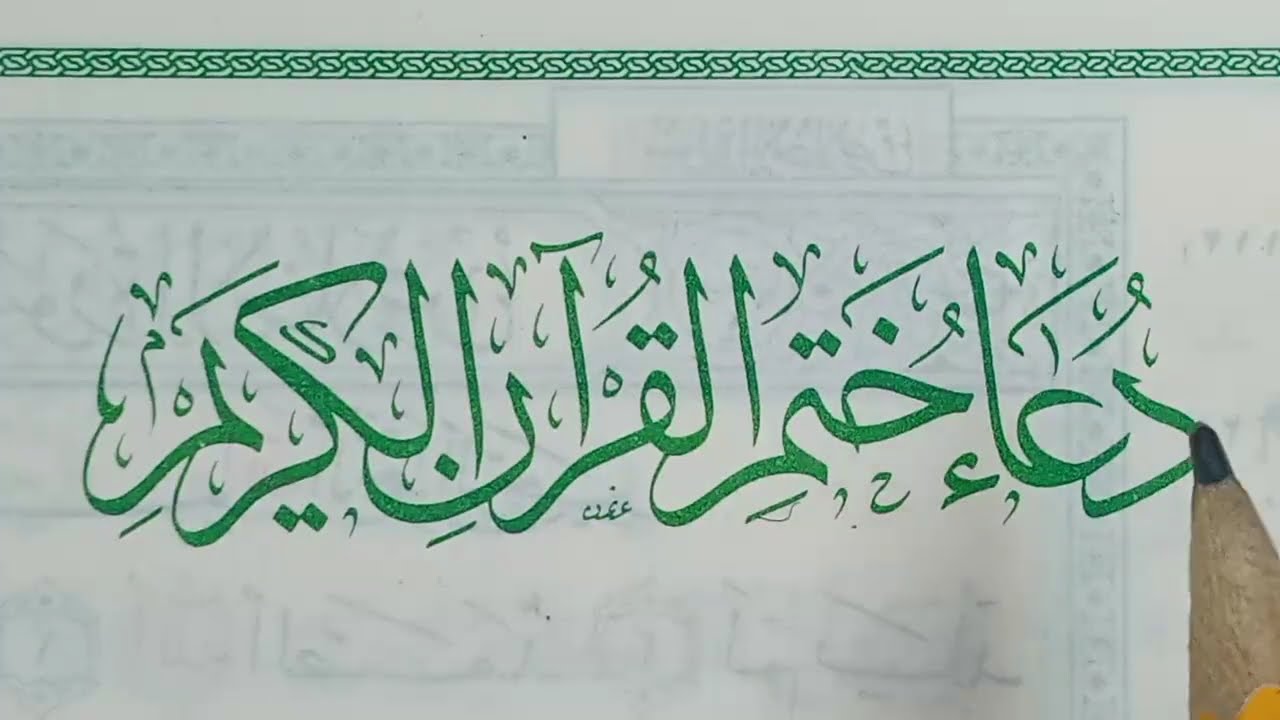 دُعَاءُ خَتْمِ الْقُرْآنِ الْكَرِيمِ